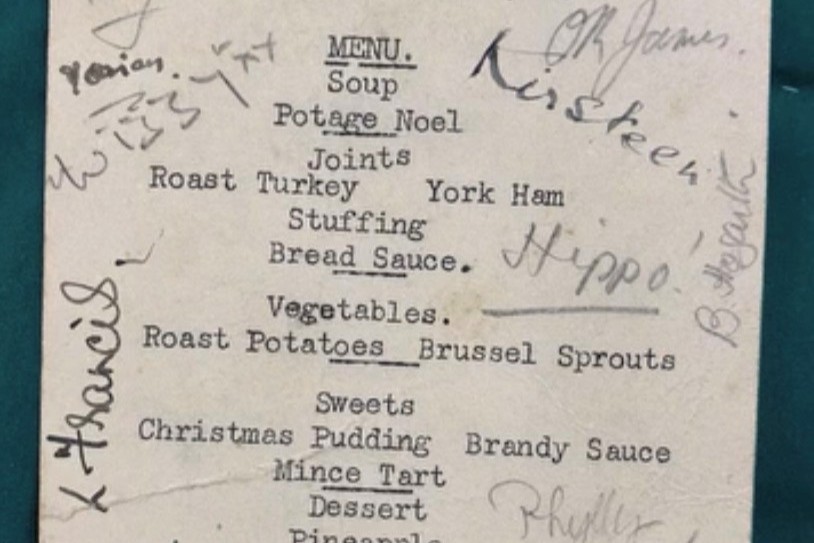 MENU.
Soup
Potage Noel
Joints
Roast Turkey York Ham
Stuffing
Bread Sauce.
Vegetables.
Roast Potatoes Brussel Sprouts
Sweets
Christmas Pudding Brandy Sauce
Mince Tart
Dessert
Pineapple
James.
Kirsteen
Hippo!
B. Hogarth
Francis
Phyllis